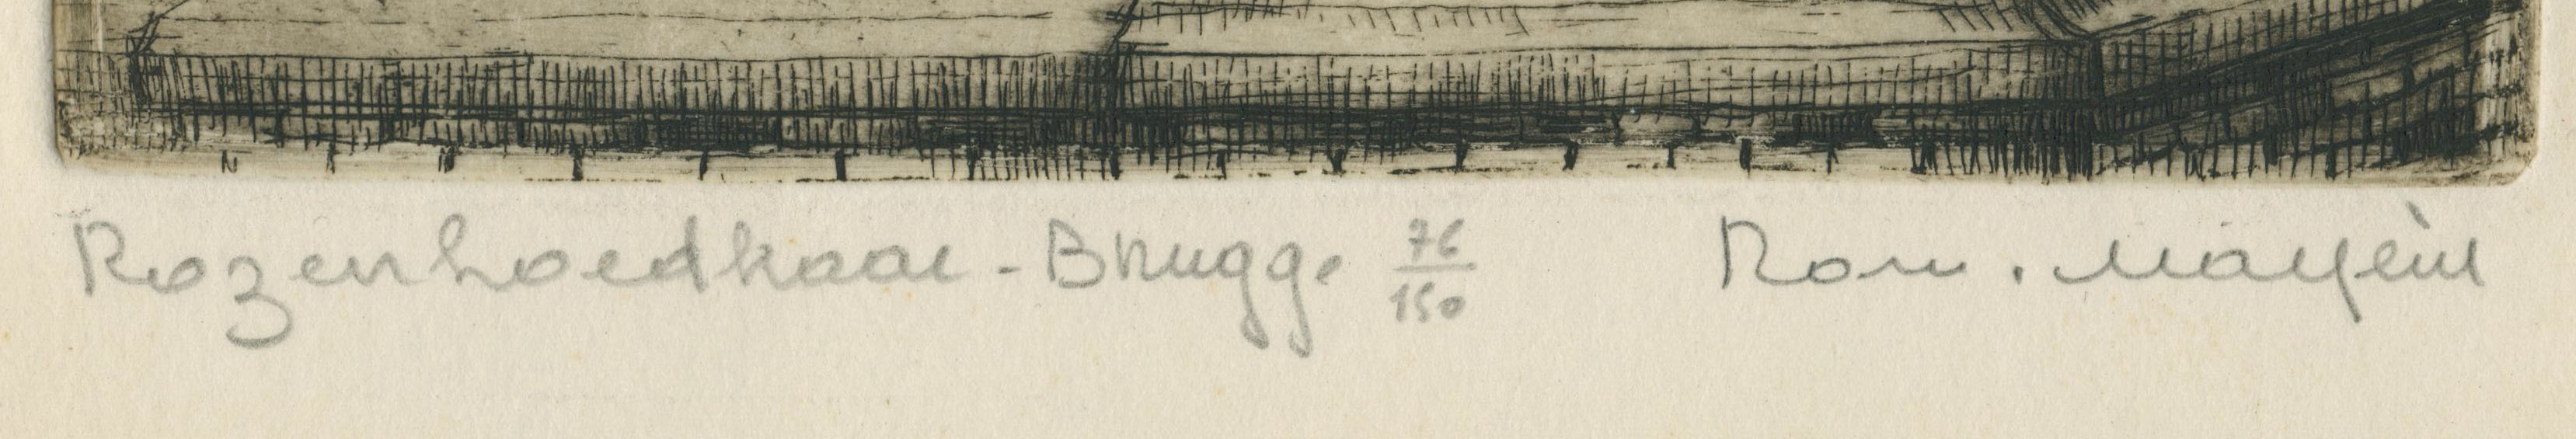 Rozenhoedkaai - Brugge 76/150 Rom. Malfliet